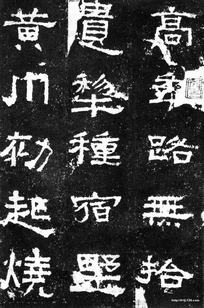 高年路無拾
遺犂種宿野
黃巾初起燒